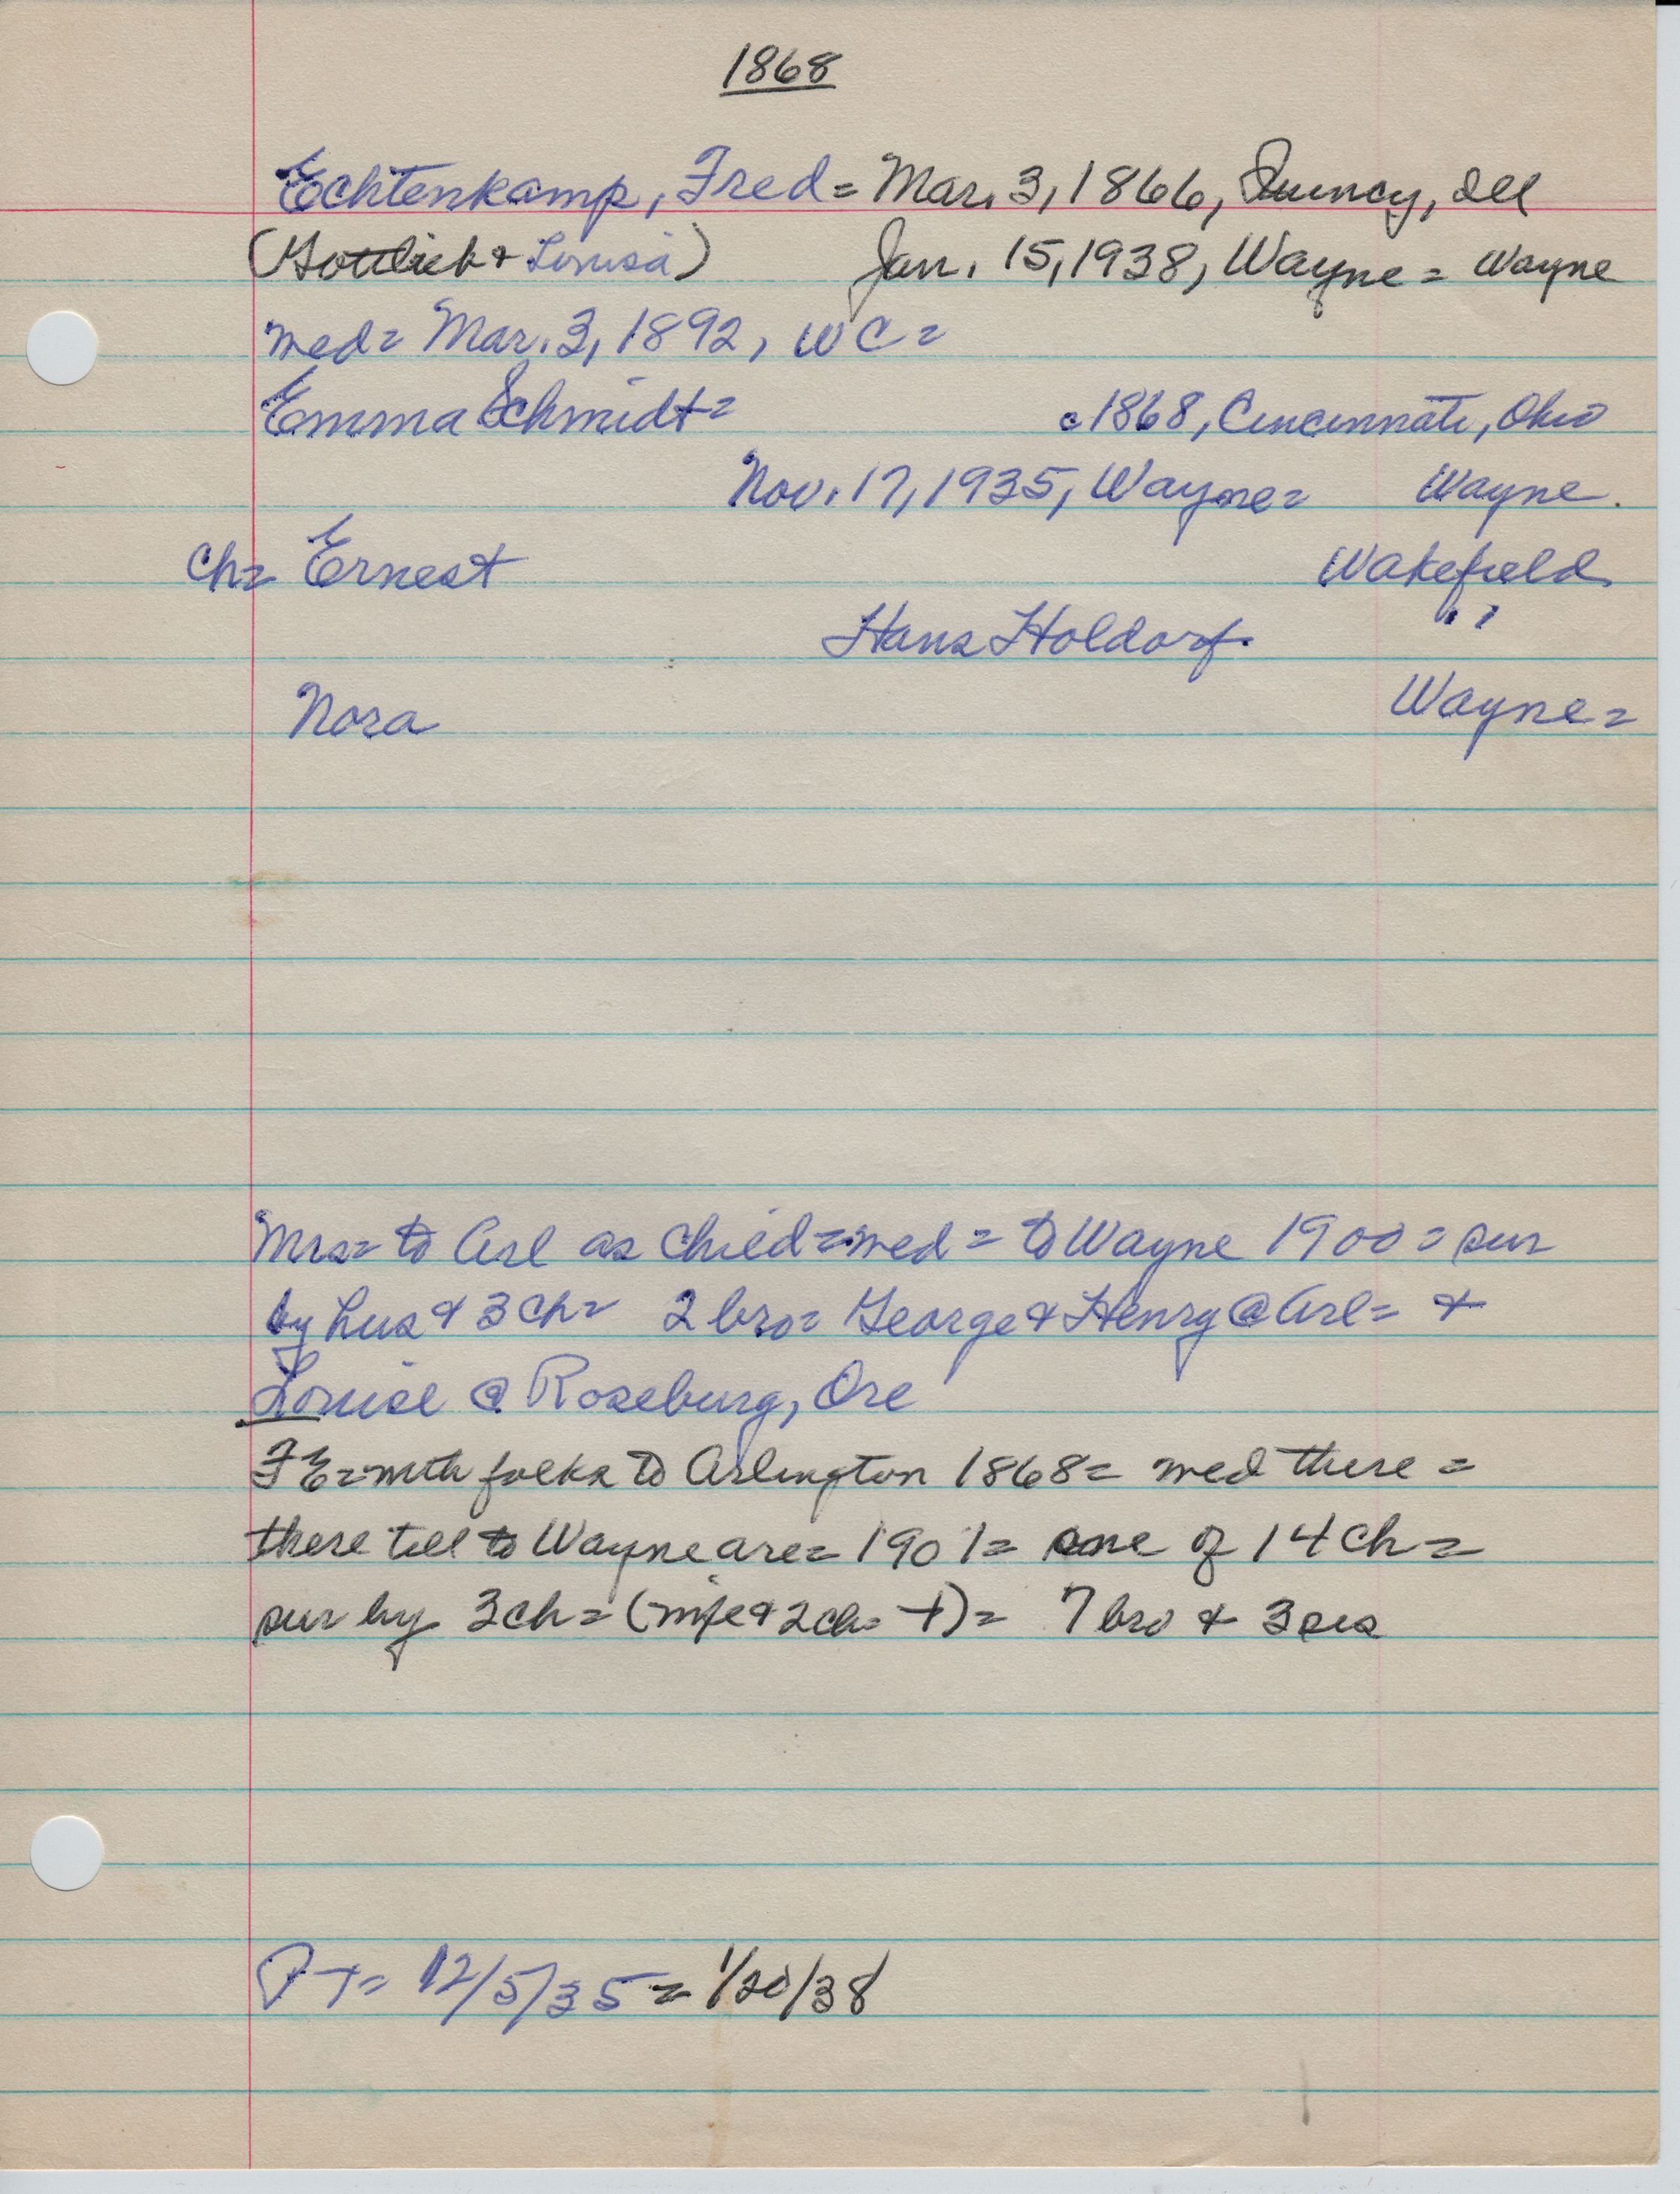 1868
Echtenkamp, Fred = Mar. 3, 1866, Quincy, Ill
(Gottlieb & Louisa) Jan. 15, 1938, Wayne = Wayne
med = Mar. 3, 1892, WC =
Emma Schmidt = c 1868, Cincinnati, Ohio
Nov. 17, 1935, Wayne = Wayne.
Ch = Ernest Wakefield
Hans Holdorf. " "
Nora Wayne =
Mrs = to Arl as child = med = to Wayne 1900 = sur
by hus & 3 ch = 2 bro = George & Henry @ Arl = &
Louise @ Roseburg, Ore
FE = with folks to Arlington 1868 = med there =
there till to Wayne are = 1901 = one of 14 ch =
sur by 3 ch = (wife & 2 ch = +) = 7 bro & 3 sis
PT = 12/5/35 = 1/20/38